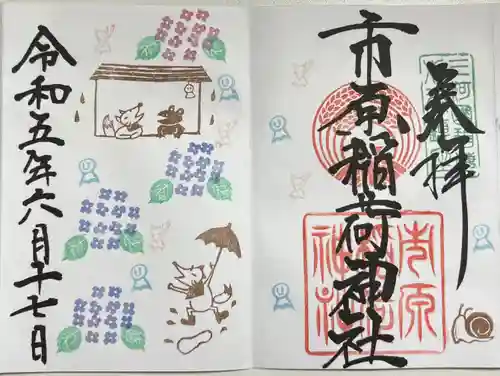 奉拝
市原稲荷神社
市原
稲荷
神社
令和五年六月十七日